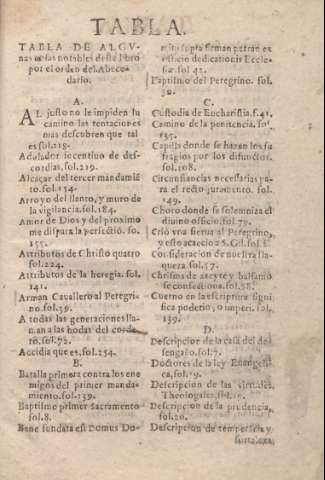 TABLA.
TABLA DE ALGV-
nas cosas notables deste libro
por el orden del Abece-
dario.
A.
AL justo no le impiden su
camino las tentaciones
mas descubren que tal
es fol. 218.
Adulador incentiuo de dis-
cordias. fol. 219.
Alcaçar del tercer mandamie-
to. fol. 154.
Arroyo del llanto, y muro de
la vigilancia. fol. 184.
Amor de Dios y del proximo
me dispara la perfectiō. fo.
155.
Attributos de Christo quatro
fol. 224.
Attributos de la heregia. fol.
141.
Arman Cauallero al Peregri-
no. fol. 59.
A todas las generaciones lla-
man a las bodas del corde-
ro. fol. 72.
Accidia que es. fol. 254.
B.
Batalla primera contra los ene
migos del primer manda-
miento. fol. 139.
Baptismo primer sacramento
fol. 8.
Bene fundata est Domus Do-
firman
officio dedicationis Eccle-
sia. fol. 42.
Baptismo del Peregrino. fol.
30.
C.
Custodia de Eucharistia. f. 41.
Camino de la penitencia. fol.
135.
Capilla donde se hazen los su
fragios por los difunctos.
fol. 108.
Circunstancias necessarias pa-
ra el recto juramento. fol.
149.
Choro donde se solemniza el
diuino officio. fol. 79.
Crió vna sierua al Peregrino,
y esto acaecio a S. Gil. fol.
Consideracion de nuestra fla-
queza. fol. 57.
Chrismos de azeyte y balsamo
se confectiona. fol. 58.
Cuerno en la escriptura signi
fica poderio, o imperi. fol.
139.
D.
Descripcion de la casa del de-
sengaño. fol. 7.
Doctores de la ley Euangeli-
ca, fol. 19.
Descripcion de las virtudes
Theologales. fol. 19.
Descripcion de la prudencia,
fol. 20.
Descripcion de temperācia y